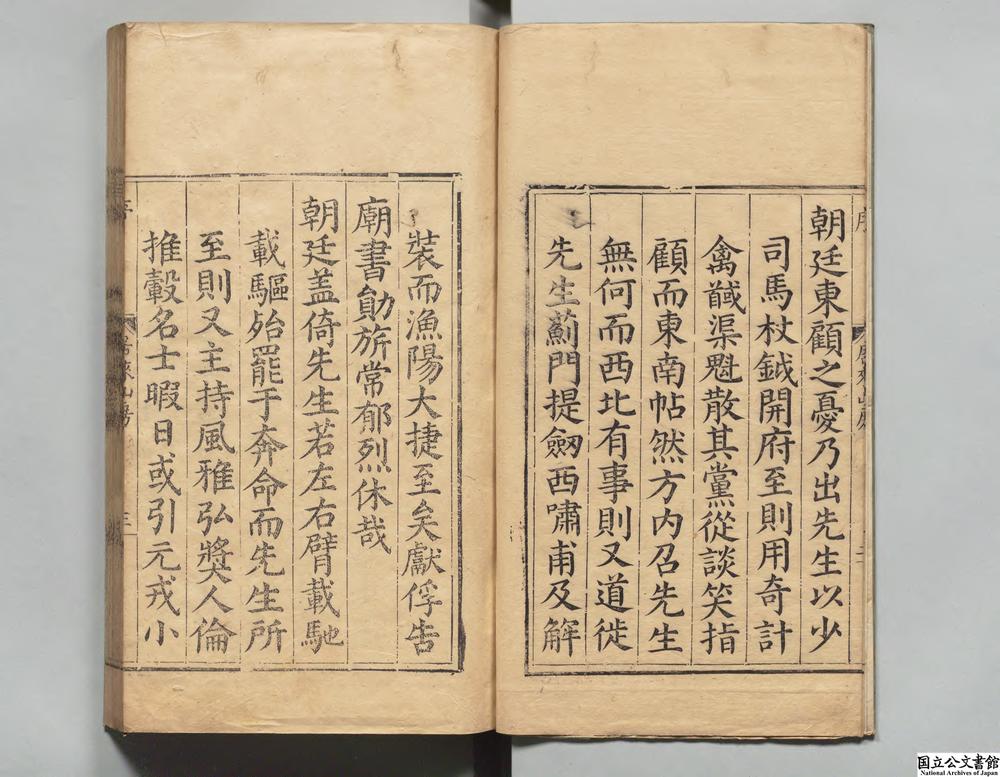 朝廷東顧之憂乃出先生以少
司馬杖鉞開府至則用奇計
禽馘渠魁散其黨從談笑指
顧而東南帖然方內召先生
無何而西北有事則又道徙
先生薊門提劔西嘯甫及解
裝而漁陽大捷至矣獻俘告
廟書勛旂常郁烈休哉
朝廷盖倚先生若左右臂載馳
載驅殆罷于奔命而先生所
至則又主持風雅弘奬人倫
推轂名士暇日或引元戎小
序
三
国立公文書館
National Archives of Japan